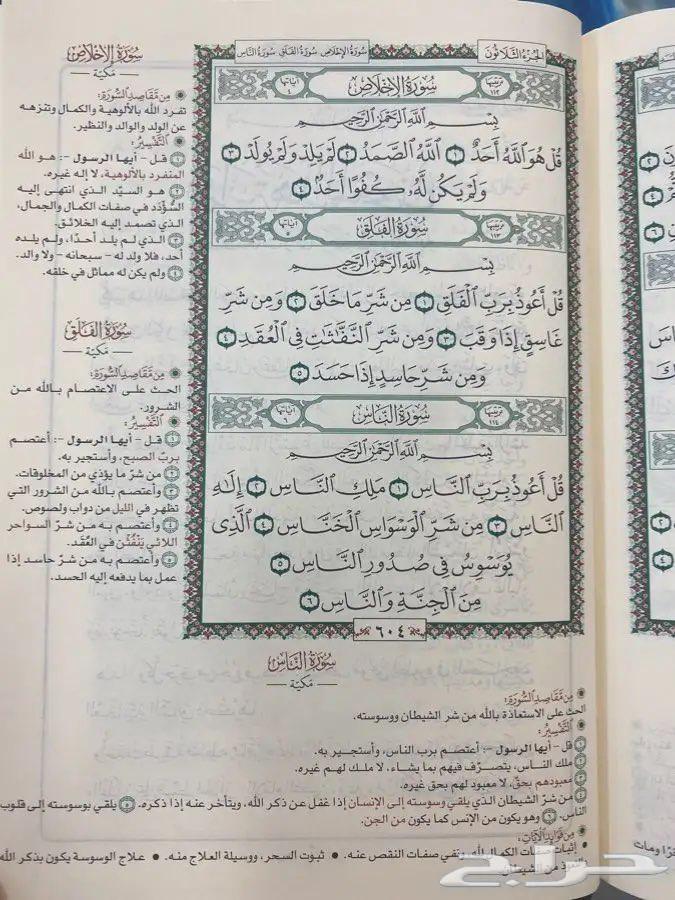 الجزء الثلاثون
سورة الإخلاص سورة الفلق سورة الناس
ترتيبها ١١٢
سُورَةُ الإِخْلَاصِ
آياتها ٤
بِسْمِ اللَّهِ الرَّحْمَٰنِ الرَّحِيمِ
قُلْ هُوَ ٱللَّهُ أَحَدٌ ١ ٱللَّهُ ٱلصَّمَدُ ٢ لَمْ يَلِدْ وَلَمْ يُولَدْ ٣
وَلَمْ يَكُن لَّهُۥ كُفُوًا أَحَدٌۢ ٤
ترتيبها ١١٣
سُورَةُ الفَلَقِ
آياتها ٥
بِسْمِ اللَّهِ الرَّحْمَٰنِ الرَّحِيمِ
قُلْ أَعُوذُ بِرَبِّ ٱلْفَلَقِ ١ مِن شَرِّ مَا خَلَقَ ٢ وَمِن شَرِّ
غَاسِقٍ إِذَا وَقَبَ ٣ وَمِن شَرِّ ٱلنَّفَّٰثَٰتِ فِى ٱلْعُقَدِ ٤
وَمِن شَرِّ حَاسِدٍ إِذَا حَسَدَ ٥
ترتيبها ١١٤
سُورَةُ النَّاسِ
آياتها ٦
بِسْمِ اللَّهِ الرَّحْمَٰنِ الرَّحِيمِ
قُلْ أَعُوذُ بِرَبِّ ٱلنَّاسِ ١ مَلِكِ ٱلنَّاسِ ٢ إِلَٰهِ
ٱلنَّاسِ ٣ مِن شَرِّ ٱلْوَسْوَاسِ ٱلْخَنَّاسِ ٤ ٱلَّذِى
يُوَسْوِسُ فِى صُدُورِ ٱلنَّاسِ ٥
مِنَ ٱلْجِنَّةِ وَٱلنَّاسِ ٦
٦٠٤
سُورَةُ الإِخْلَاصِ
مَكيّة
من مقاصد السورة:
تفرد الله بالألوهية والكمال وتنزهه
عن الولد والوالد والنظير.
التفسير:
١ قل - أيها الرسول -: هو الله
المنفرد بالألوهية، لا إله غيره.
٢ هو السيّد الذي انتهى إليه
السُّؤْدَد في صفات الكمال والجمال،
الذي تصمد إليه الخلائق.
٣ الذي لم يلد أحدًا، ولم يلده
أحد، فلا ولد له - سبحانه - ولا والد.
٤ ولم يكن له مماثل في خلقه.
سُورَةُ الفَلَقِ
مَكيّة
من مقاصد السورة:
الحث على الاعتصام بالله من
الشرور.
التفسير:
١ قل - أيها الرسول -: أعتصم
بربّ الصبح، وأستجير به.
٢ من شرّ ما يؤذي من المخلوقات.
٣ وأعتصم بالله من الشرور التي
تظهر في الليل من دواب ولصوص.
٤ وأعتصم به من شرّ السواحر
اللائي يَنْفُثْن في العُقَد.
٥ وأعتصم به من شرّ حاسد إذا
عمل بما يدفعه إليه الحسد.
سُورَةُ النَّاسِ
مَكيّة
من مقاصد السورة:
الحث على الاستعاذة بالله من شر الشيطان ووسوسته.
التفسير:
١ قل - أيها الرسول -: أعتصم برب الناس، وأستجير به.
٢ ملك الناس، يتصرّف فيهم بما يشاء، لا ملك لهم غيره.
٣ معبودهم بحقّ، لا معبود لهم بحق غيره.
٤ من شرّ الشيطان الذي يلقي وسوسته إلى الإنسان إذا غفل عن ذكر الله، ويتأخر عنه إذا ذكره. ٥ يلقي بوسوسته إلى قلوب
الناس. ٦ وهو يكون من الإنس كما يكون من الجن.
من فوائد الآيات:
إثبات صفات الكمال لله، ونفي صفات النقص عنه. • ثبوت السحر، ووسيلة العلاج منه. • علاج الوسوسة يكون بذكر الله
والتعوذ من الشيطان.
حراج